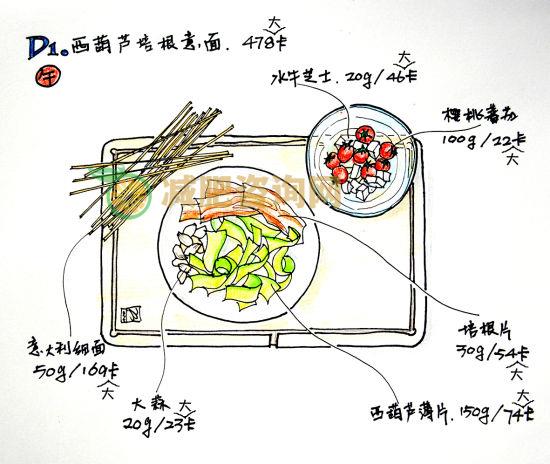 大
D1. 西葫芦培根意面. 478卡
午
大
水牛芝士. 20g/46卡
樱桃番茄
100g/22卡
大
减肥咨询网
意大利细面
50g/169卡
大
培根片
30g/54卡
大
大蒜 大
20g/23卡
大
西葫芦薄片. 150g/74卡